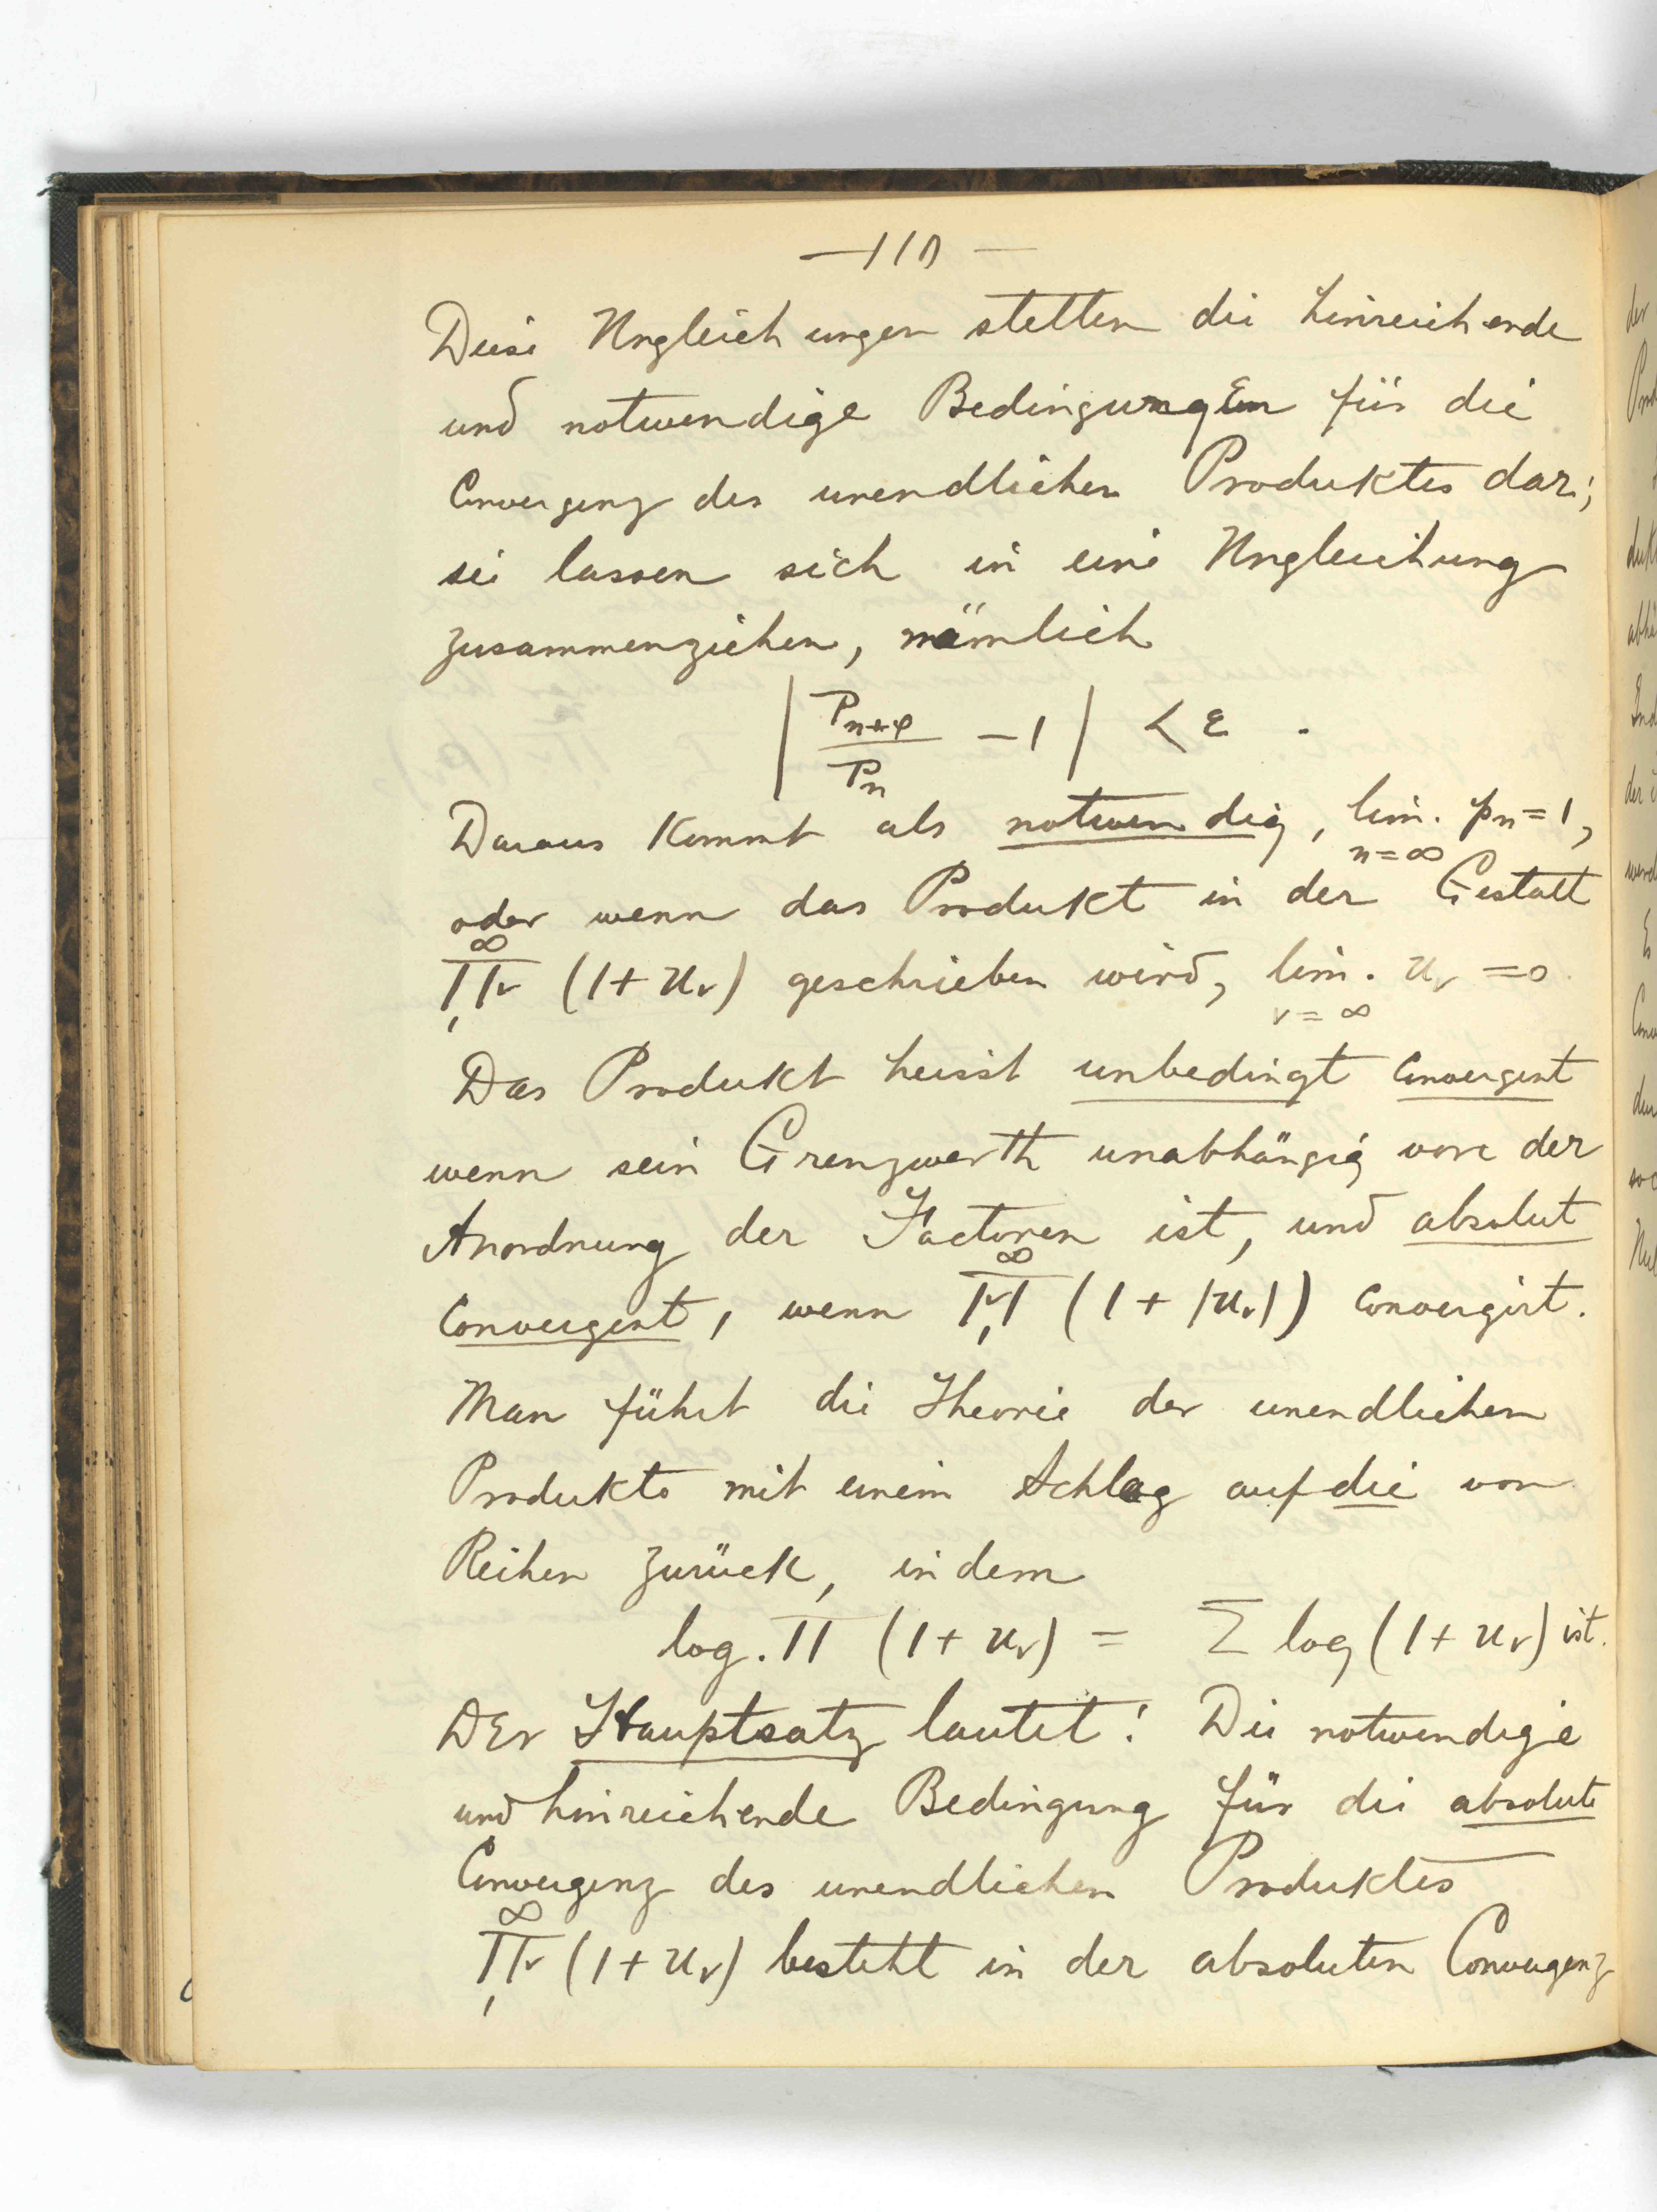 —110—
Diese Ungleichungen stellen die hinreichende
und notwendige Bedingungen für die
Convergenz des unendlichen Produktes dar;
sie lassen sich in eine Ungleichung
zusammenziehen, nämlich
| P_{n+p} / P_n − 1 | < ε .
Daraus kommt als notwendig, lim. p_n = 1,
n = ∞
oder wenn das Produkt in der Gestalt
∏_1^∞ ν (1 + u_ν) geschrieben wird, lim. u_ν = 0
ν = ∞
Das Produkt heisst unbedingt convergent
wenn sein Grenzwerth unabhängig von der
Anordnung der Factoren ist, und absolut
convergent, wenn ∏_1^∞ ν (1 + |u_ν|) convergirt.
Man führt die Theorie der unendlichen
Produkte mit einem Schlag auf die von
Reihen zurück, indem
log. ∏ (1 + u_ν) = Σ log (1 + u_ν) ist.
Der Hauptsatz lautet: Die notwendige
und hinreichende Bedingung für die absolute
Convergenz des unendlichen Produktes
∏_1^∞ ν (1 + u_ν) besteht in der absoluten Convergenz